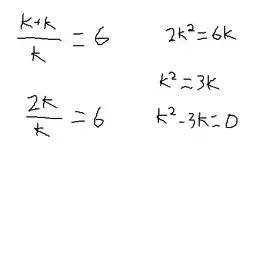 (K+K)/K = 6
2K/K = 6
2K² = 6K
K² = 3K
K² - 3K = 0